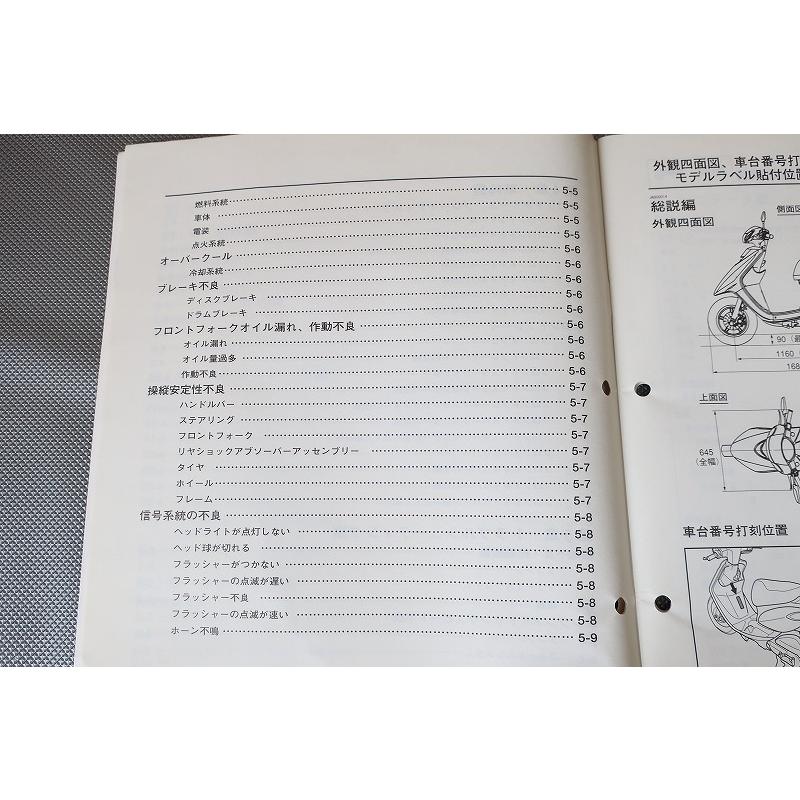 燃料系統 5-5
車体 5-5
電装 5-5
点火系統 5-5
オーバークール 5-6
冷却系統 5-6
ブレーキ不良 5-6
ディスクブレーキ 5-6
ドラムブレーキ 5-6
フロントフォークオイル漏れ、作動不良 5-6
オイル漏れ 5-6
オイル量過多 5-6
作動不良 5-6
操縦安定性不良 5-7
ハンドルバー 5-7
ステアリング 5-7
フロントフォーク 5-7
リヤショックアブソーバーアッセンブリー 5-7
タイヤ 5-7
ホイール 5-7
フレーム 5-7
信号系統の不良 5-8
ヘッドライトが点灯しない 5-8
ヘッド球が切れる 5-8
フラッシャーがつかない 5-8
フラッシャーの点滅が遅い 5-8
フラッシャー不良 5-8
フラッシャーの点滅が速い 5-8
ホーン不鳴 5-9
外観四面図、車台番号打
モデルラベル貼付位置
総説編
外観四面図
側面図
90（最
1160
168
上面図
645
（全幅）
車台番号打刻位置